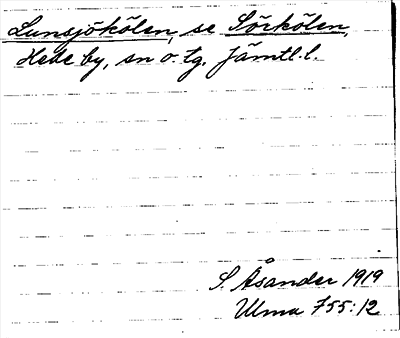 Lunsjökölen, se Sörkölen,
Hede by, sn o. tg. Jämtl. l.
S. Åsander 1919
Ulma 755:12